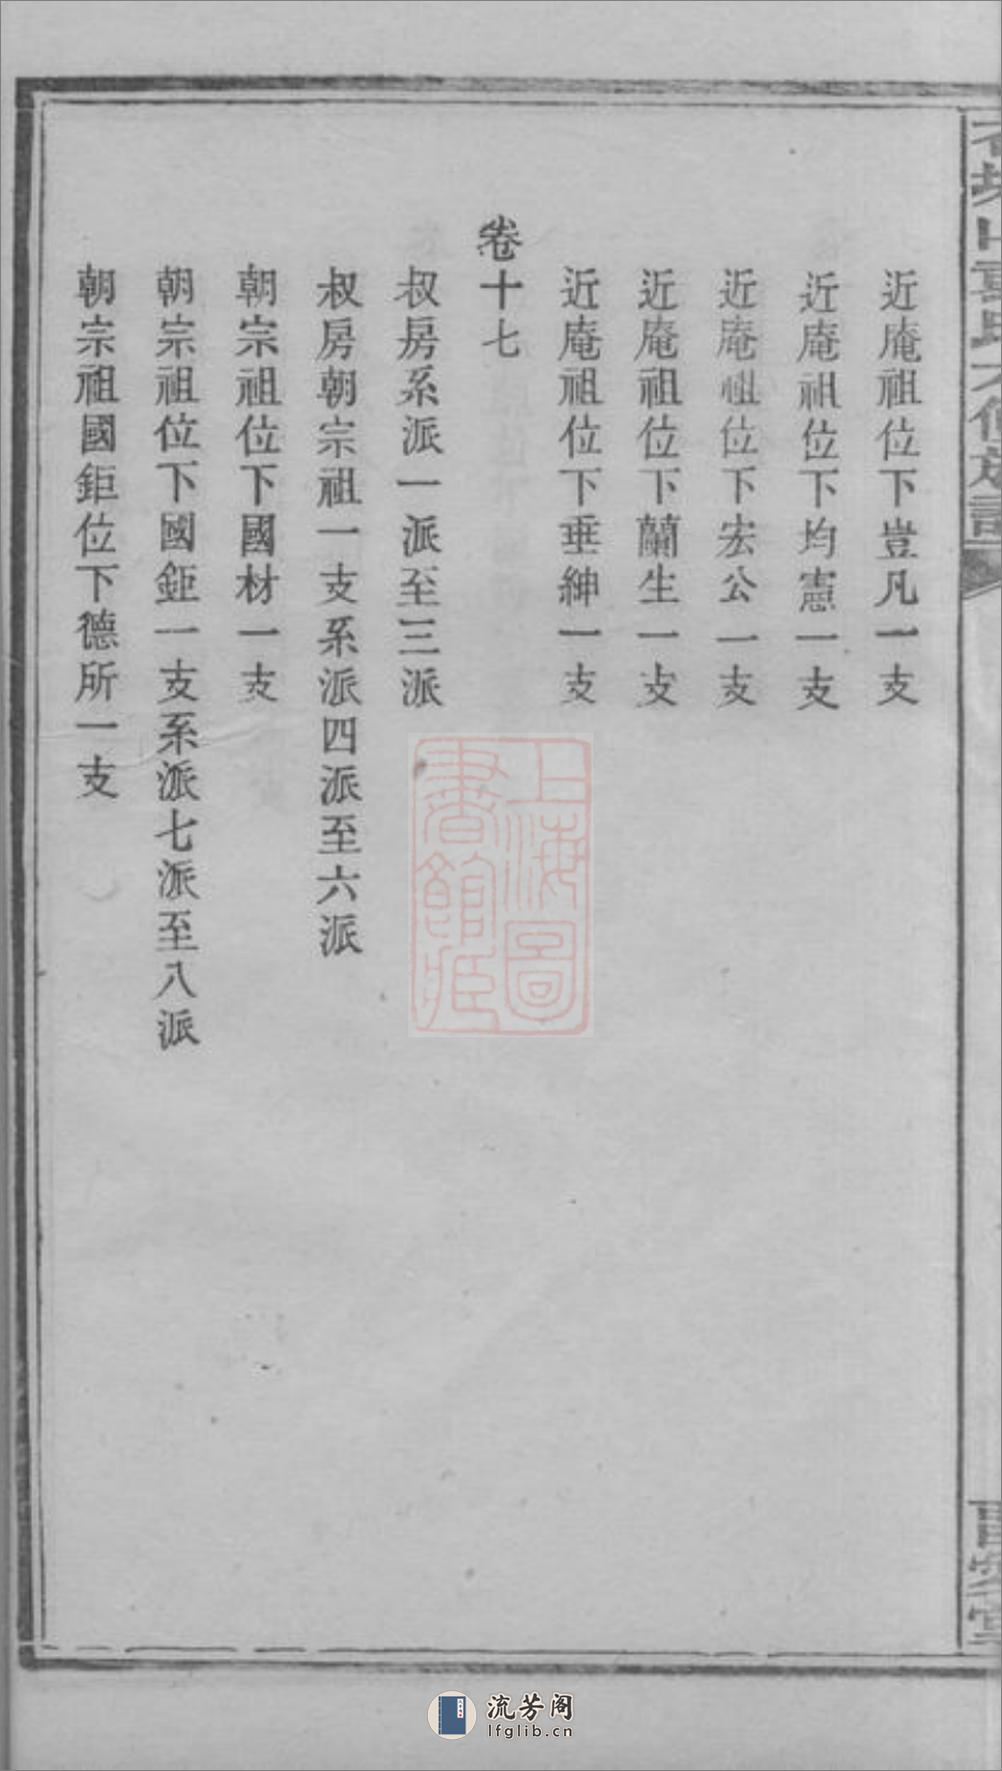 近庵祖位下豈凡一支
近庵祖位下均憲一支
近庵祖位下宏公一支
近庵祖位下蘭生一支
近庵祖位下垂紳一支
卷十七
叔房系派一派至三派
叔房朝宗祖一支系派四派至六派
朝宗祖位下國材一支
朝宗祖位下國鉅一支系派七派至八派
朝宗祖國鉅位下德所一支
上海圖書館藏
流芳阁
lfglib.cn